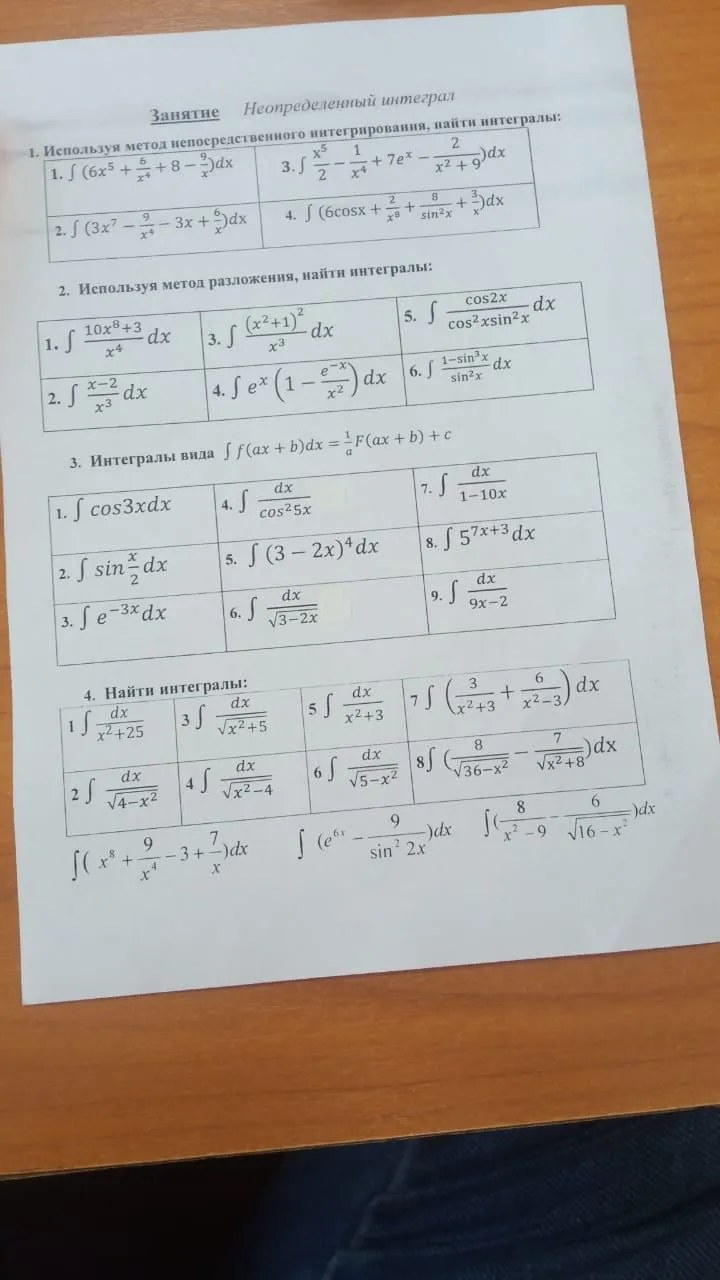 Занятие Неопределенный интеграл
1. Используя метод непосредственного интегрирования, найти интегралы:
1. ∫ (6x⁵ + 6/x⁴ + 8 − 9/x)dx 3. ∫ x⁵/2 − 1/x⁴ + 7eˣ − 2/(x² + 9))dx
2. ∫ (3x⁷ − 9/x⁴ − 3x + 6/x)dx 4. ∫ (6cosx + 2/x⁸ + 8/sin²x + 3/x)dx
2. Используя метод разложения, найти интегралы:
1. ∫ (10x⁸+3)/x⁴ dx 3. ∫ (x²+1)²/x³ dx 5. ∫ cos2x/(cos²xsin²x) dx
2. ∫ (x−2)/x³ dx 4. ∫ eˣ (1 − e⁻ˣ/x²) dx 6. ∫ (1−sin³x)/sin²x dx
3. Интегралы вида ∫ f(ax + b)dx = 1/a F(ax + b) + c
1. ∫ cos3xdx 4. ∫ dx/cos²5x 7. ∫ dx/(1−10x)
2. ∫ sin x/2 dx 5. ∫ (3 − 2x)⁴ dx 8. ∫ 5⁷ˣ⁺³ dx
3. ∫ e⁻³ˣ dx 6. ∫ dx/√(3−2x) 9. ∫ dx/(9x−2)
4. Найти интегралы:
1 ∫ dx/(x²+25) 3 ∫ dx/√(x²+5) 5 ∫ dx/(x²+3) 7 ∫ (3/(x²+3) + 6/(x²−3)) dx
2 ∫ dx/√(4−x²) 4 ∫ dx/√(x²−4) 6 ∫ dx/√(5−x²) 8∫ (8/√(36−x²) − 7/√(x²+8))dx
∫( x⁸ + 9/x⁴ − 3 + 7/x)dx ∫ (e⁶ˣ − 9/sin² 2x)dx ∫(8/(x² − 9) − 6/√(16 − x²))dx